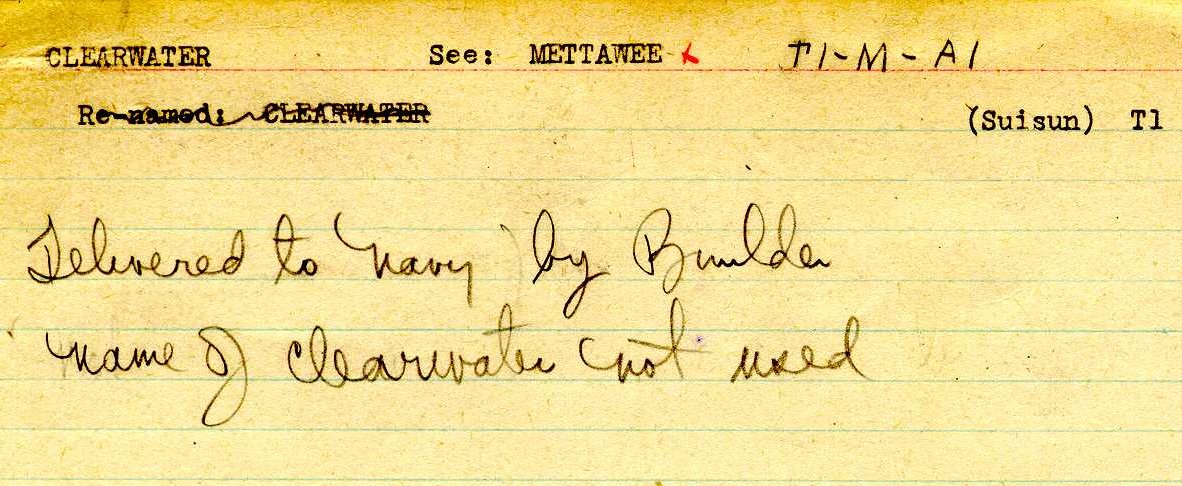 CLEARWATER See: METTAWEE x T1-M-A1
Re-named: CLEARWATER (Suisun) T1
Delivered to Navy by Builder
name of Clearwater not used